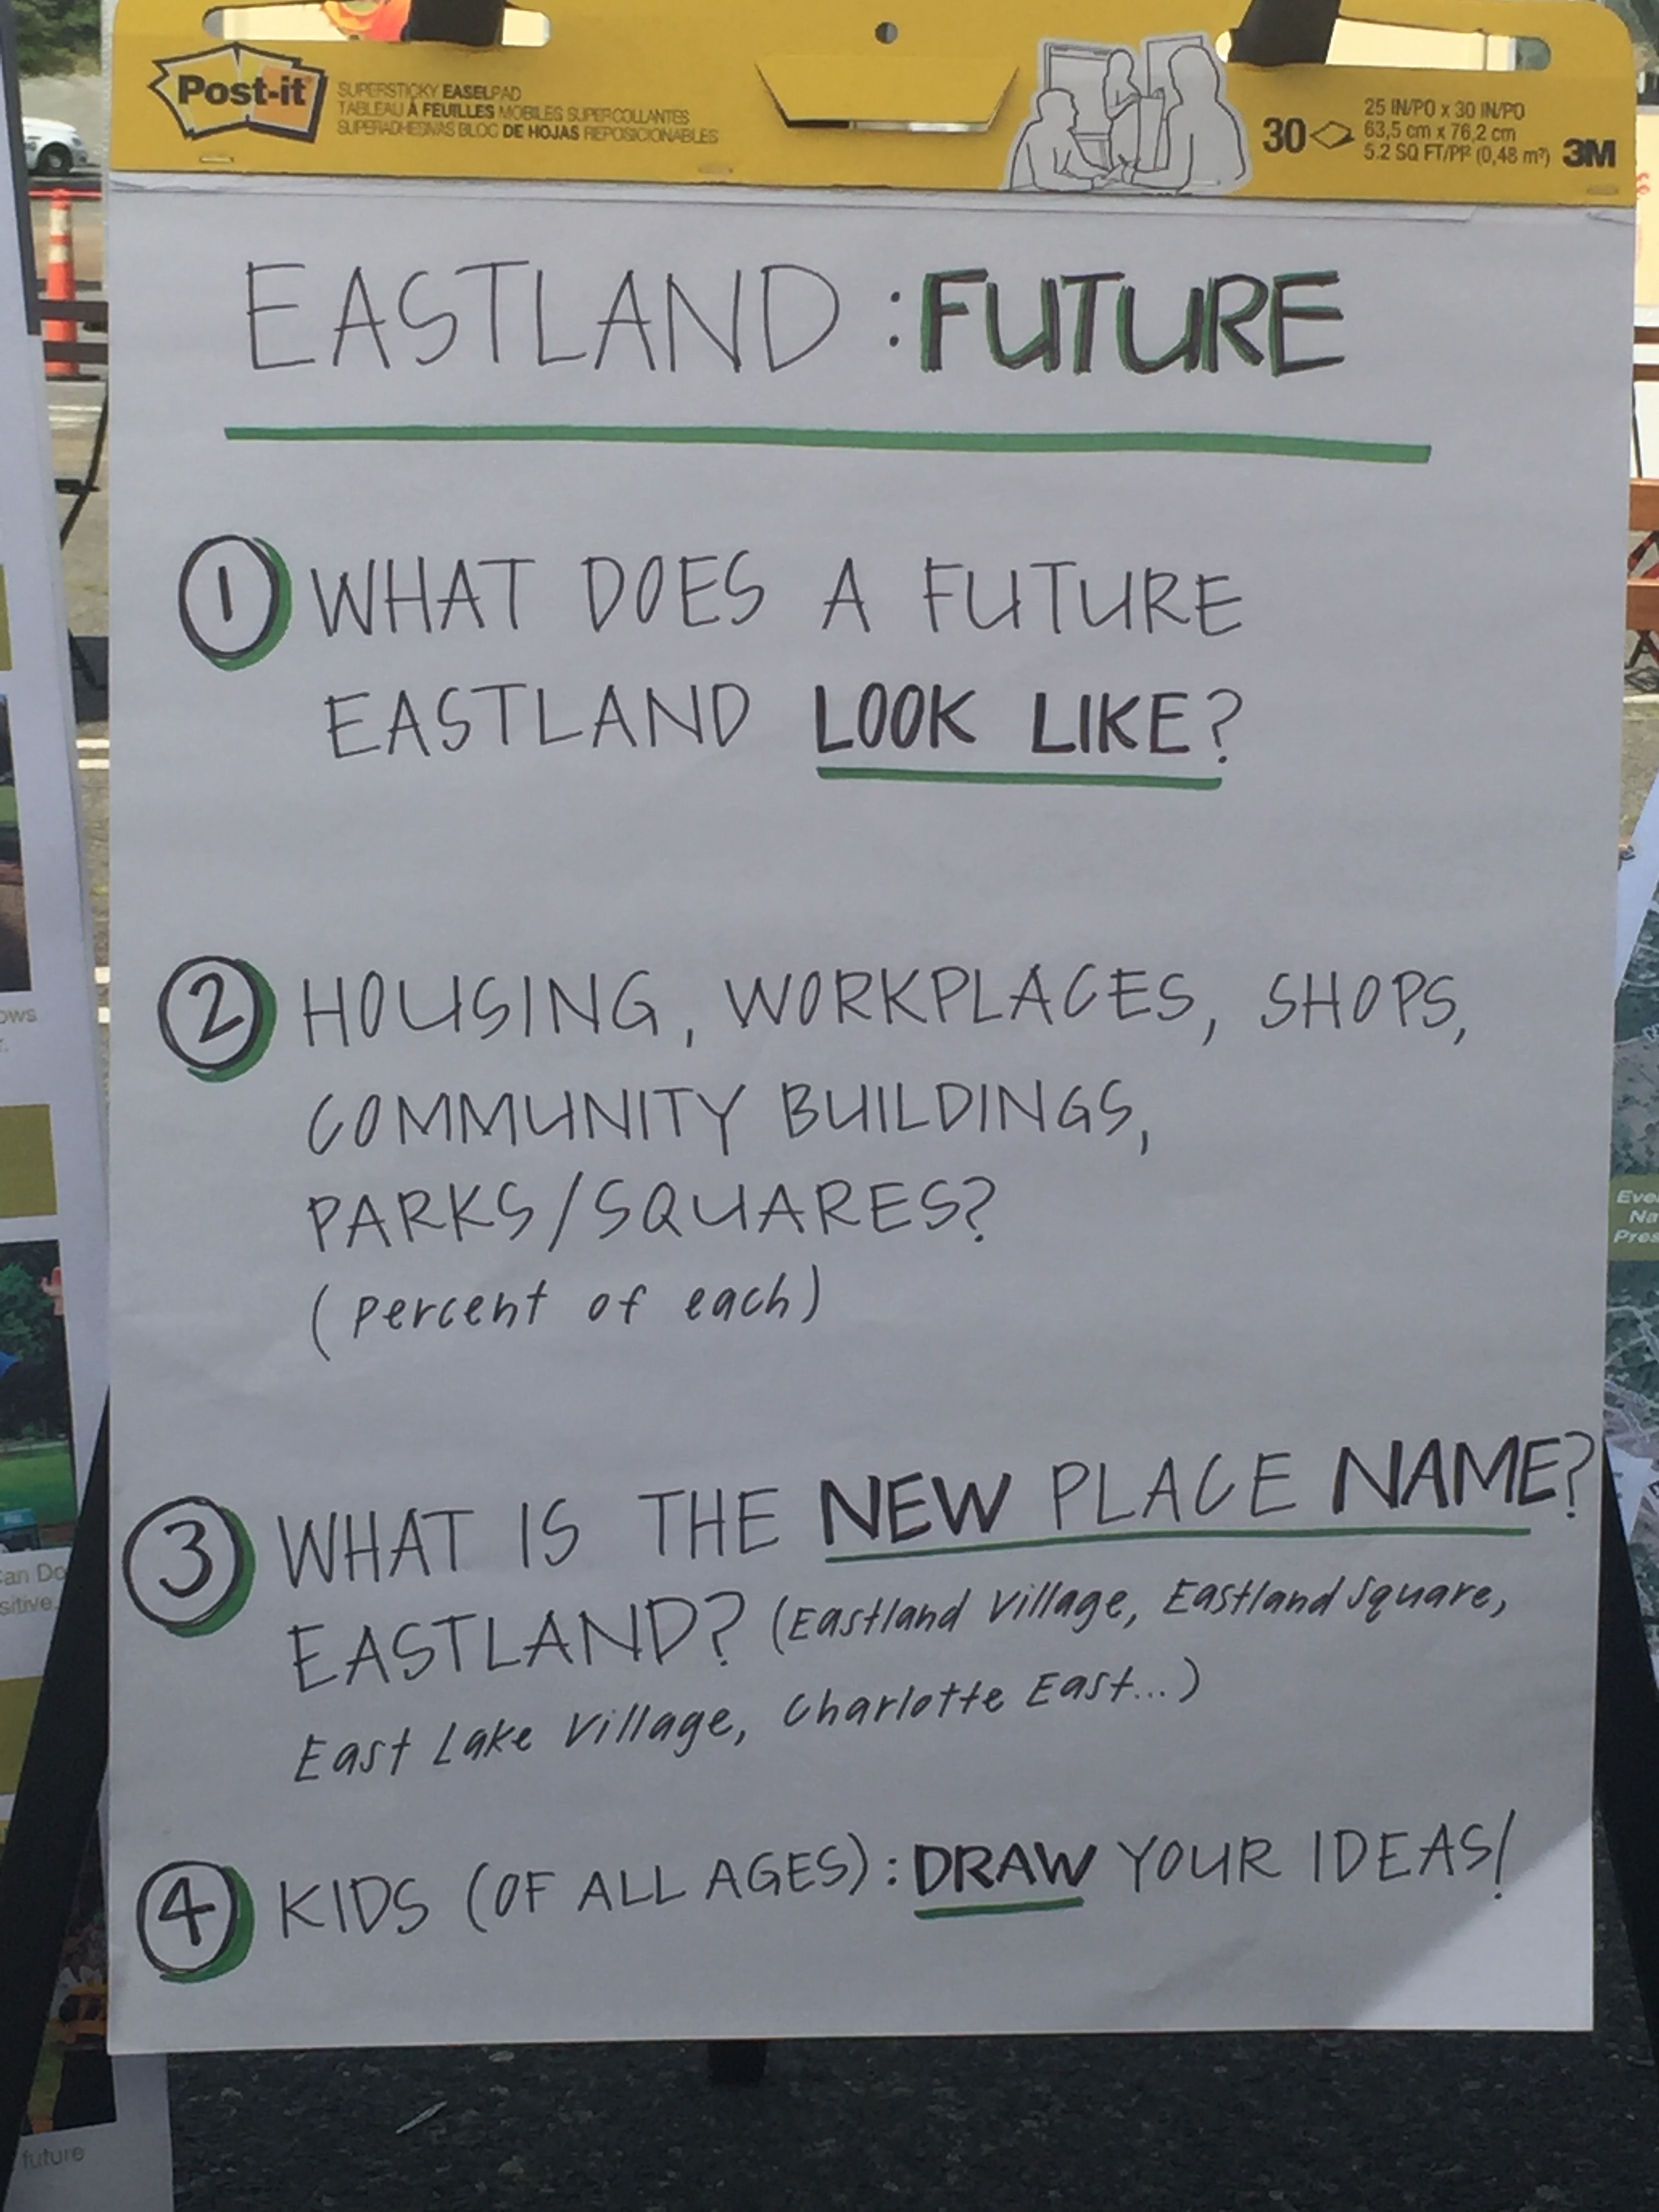 Post-it
SUPERSTICKY EASELPAD
TABLEAU À FEUILLES MOBILES SUPERCOLLANTES
SUPERADHESIVAS BLOC DE HOJAS REPOSICIONABLES
30
25 IN/PO x 30 IN/PO
63,5 cm x 76,2 cm
5.2 SQ FT/PI² (0,48 m²)
3M
EASTLAND : FUTURE
1 WHAT DOES A FUTURE
EASTLAND LOOK LIKE?
2 HOUSING, WORKPLACES, SHOPS,
COMMUNITY BUILDINGS,
PARKS/SQUARES?
(percent of each)
3 WHAT IS THE NEW PLACE NAME?
EASTLAND? (Eastland Village, Eastland Square,
East Lake Village, Charlotte East...)
4 KIDS (OF ALL AGES): DRAW YOUR IDEAS!
future